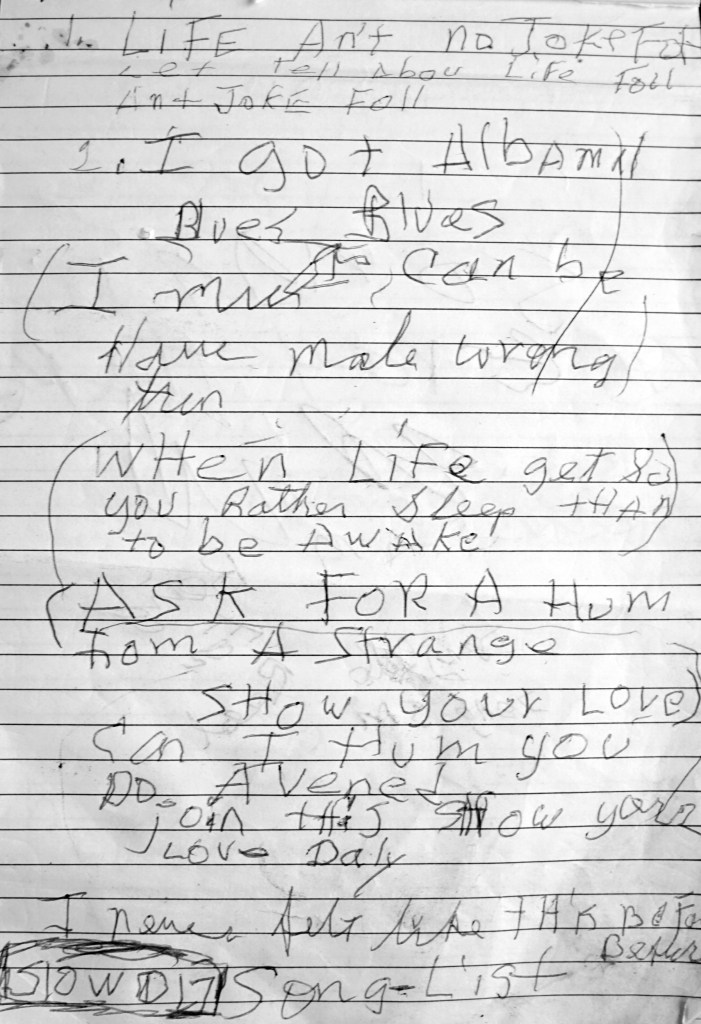 1. LIFE An't no Joke Foll
Let Tell Abou LiFe Foll
An't JokE Foll
2. I got AlbAm
Blues Blues
(I can be
Have made wrong)
(WHen LiFe get So
you Rather Sleep tHAn
to be AwAke
(ASk FOR A Hum
from A Strange
SHow your LOVe)
Can I Hum you
DO
join this SHow your
LOVe Daly
I never felt like tHis BeFo
Before
SlOW D Song-List